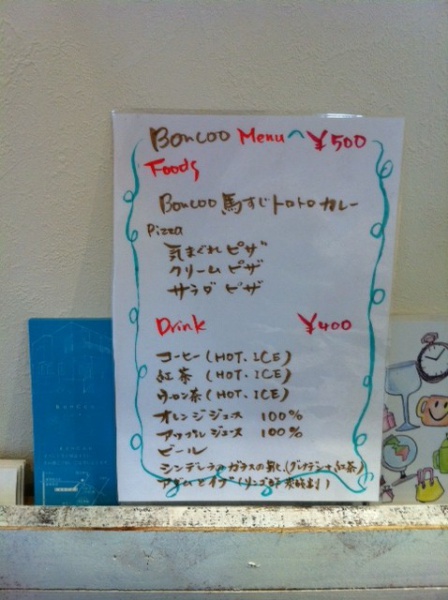 Boncoo Menu ¥500
Foods
Boncoo 馬すじトロトロカレー
Pizza
気まぐれピザ
クリームピザ
サラダピザ
Drink ¥400
コーヒー (HOT. ICE)
紅茶 (HOT. ICE)
ウーロン茶 (HOT. ICE)
オレンジジュース 100%
アップルジュース 100%
ビール
シンデレラのガラスの靴 (グレナデン+紅茶)
アダムとイブ (リンゴ酢